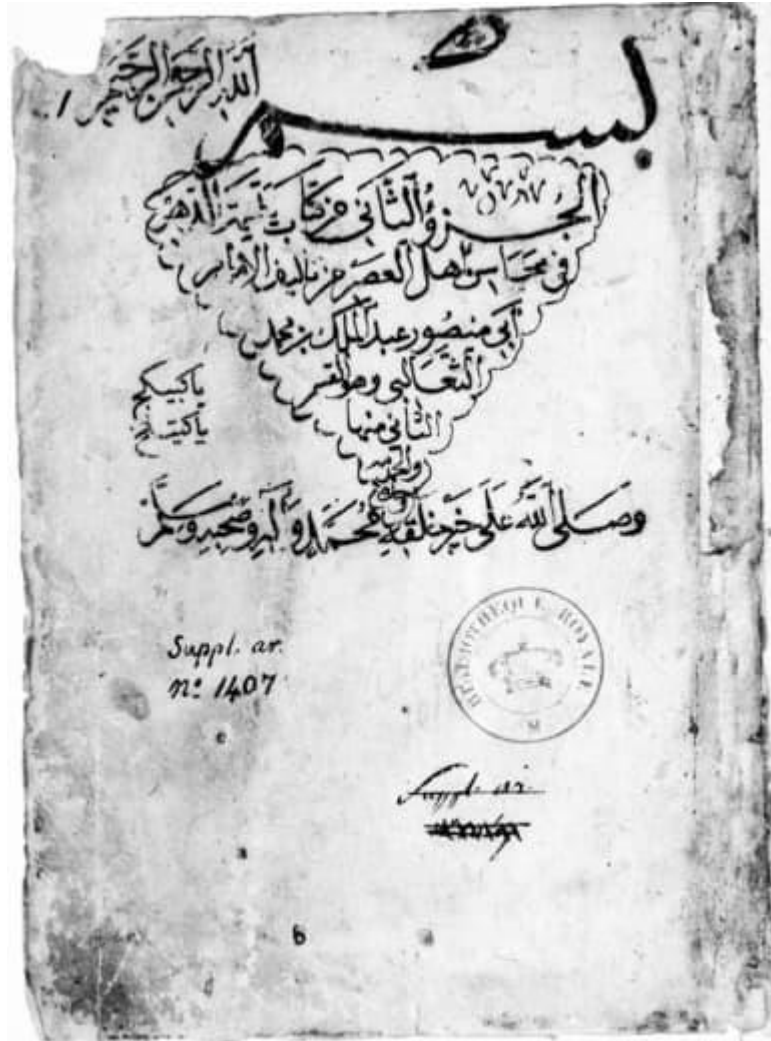 بسم
الله الرحمن الرحيم
الجزؤ الثاني من كتاب يتيمة الدهر
في محاسن اهل العصر من تاليف الامام
ابي منصور عبد الملك بن محمد
الثعالبي وهو القسم
الثاني منها
والحمد
لله
وصلى الله على خير خلقه محمد وآله وصحبه وسلم
يا كبيكج
يا كبيكج
Suppl. ar.
nº 1407
BIBLIOTHEQUE ROYALE
Suppl. ar.